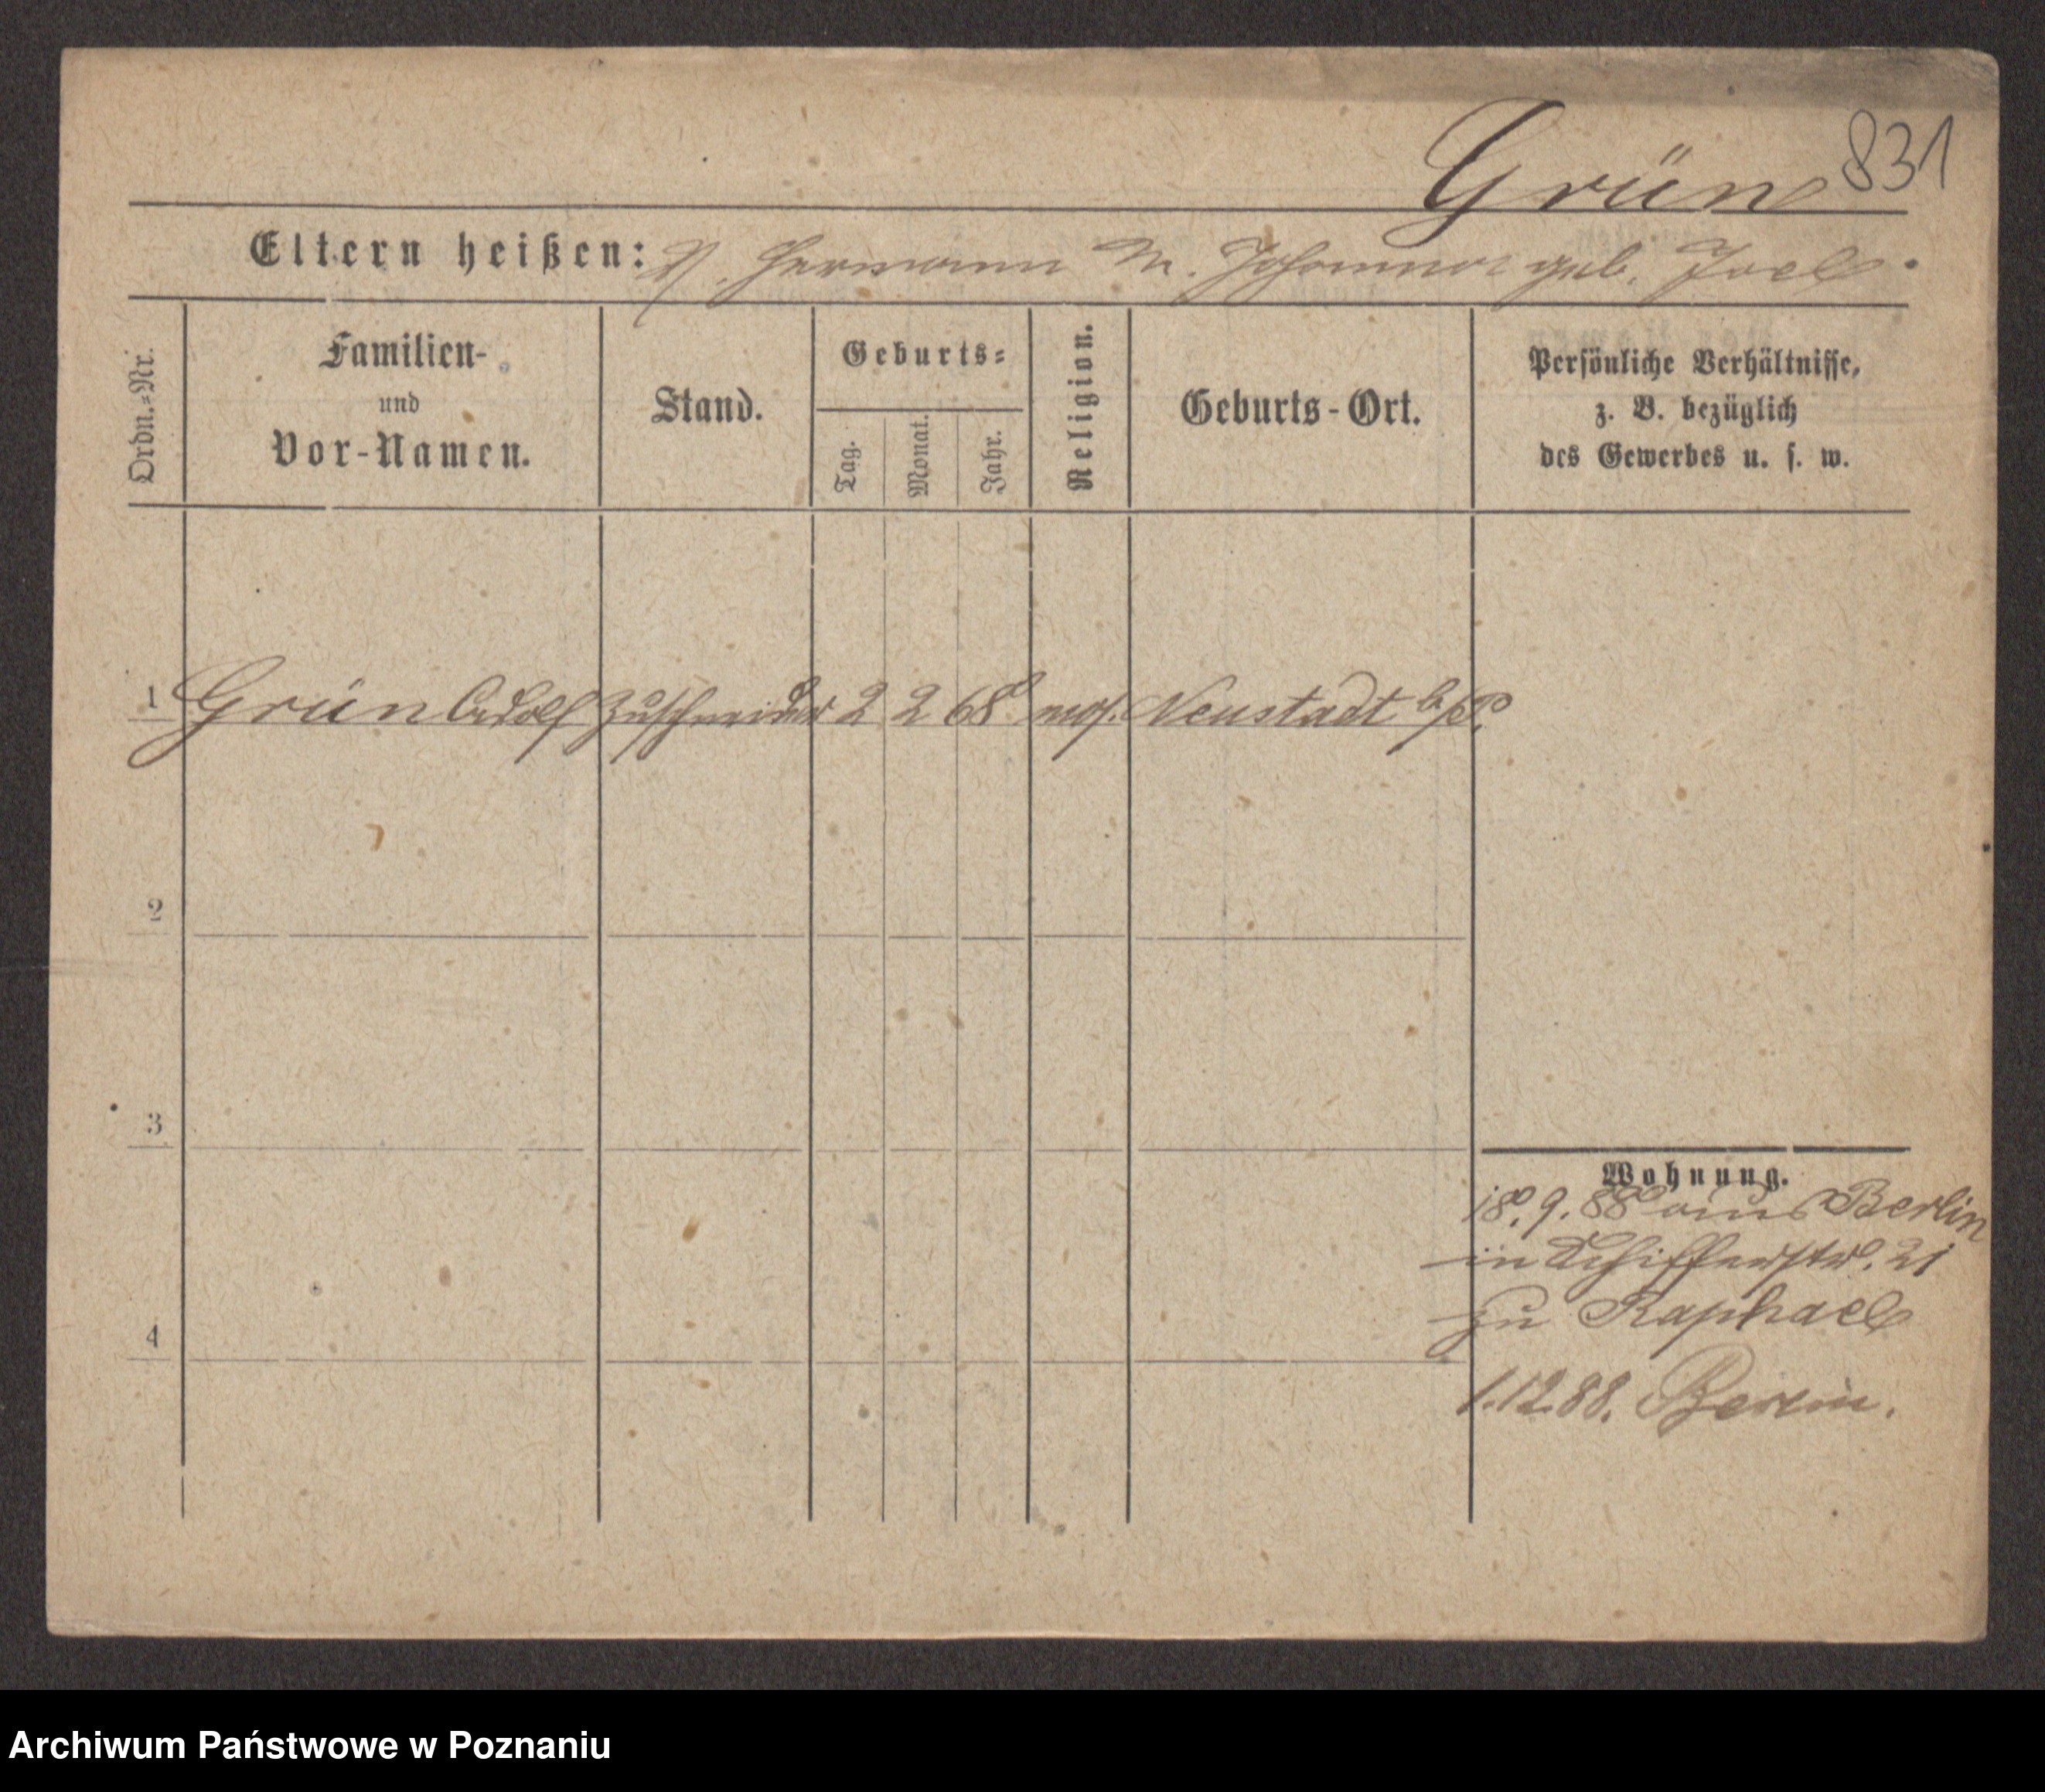 Grün 831
Eltern heißen: V. Hermann M. Johanna geb. Joel.
Ordn.-Nr.
Familien-
und
Vor-Namen.
Stand.
Geburts-
Tag.
Monat.
Jahr.
Religion.
Geburts-Ort.
Persönliche Verhältnisse,
z. B. bezüglich
des Gewerbes u. s. w.
1 Grün Adolf Zuschneider 2 2 68 mos. Neustadt b/P.
2
3
4
Wohnung.
18. 9. 88 aus Berlin
in Schifferstr. 21
zu Raphael
1.12.88. Berlin.
Archiwum Państwowe w Poznaniu